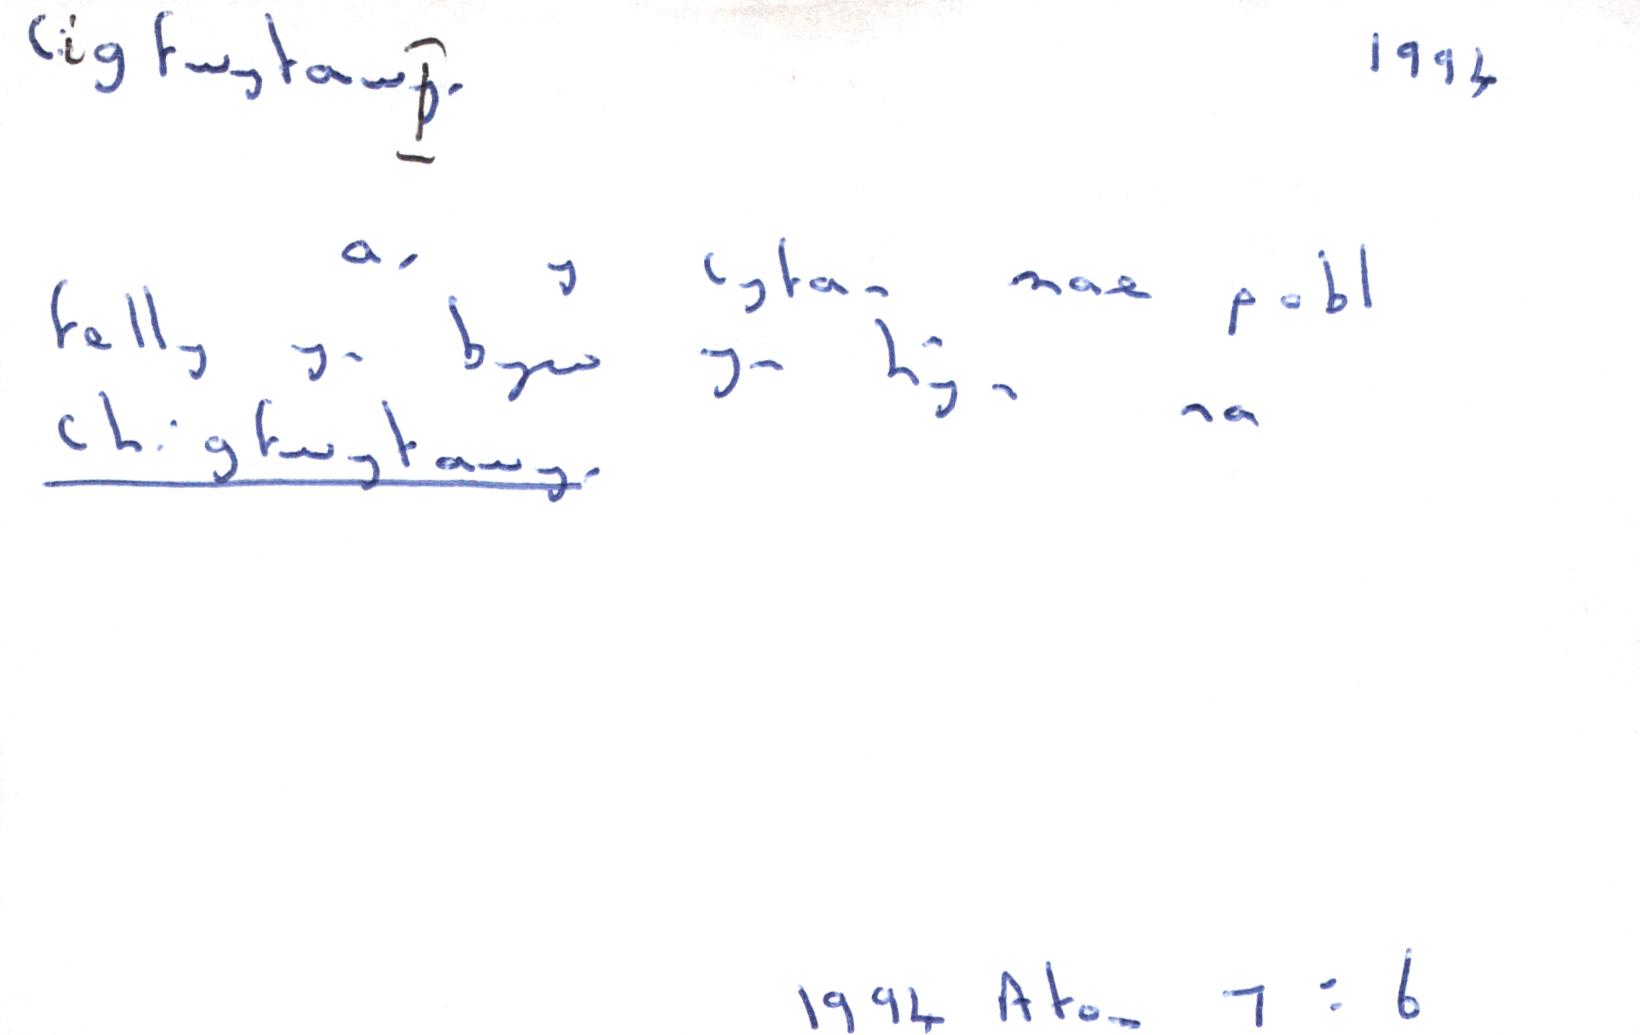 cigfwytawr
1994
ar y cyfan mae pobl
felly yn byw yn hŷn na
chigfwytawyr.
1994 Atom 7 : 6